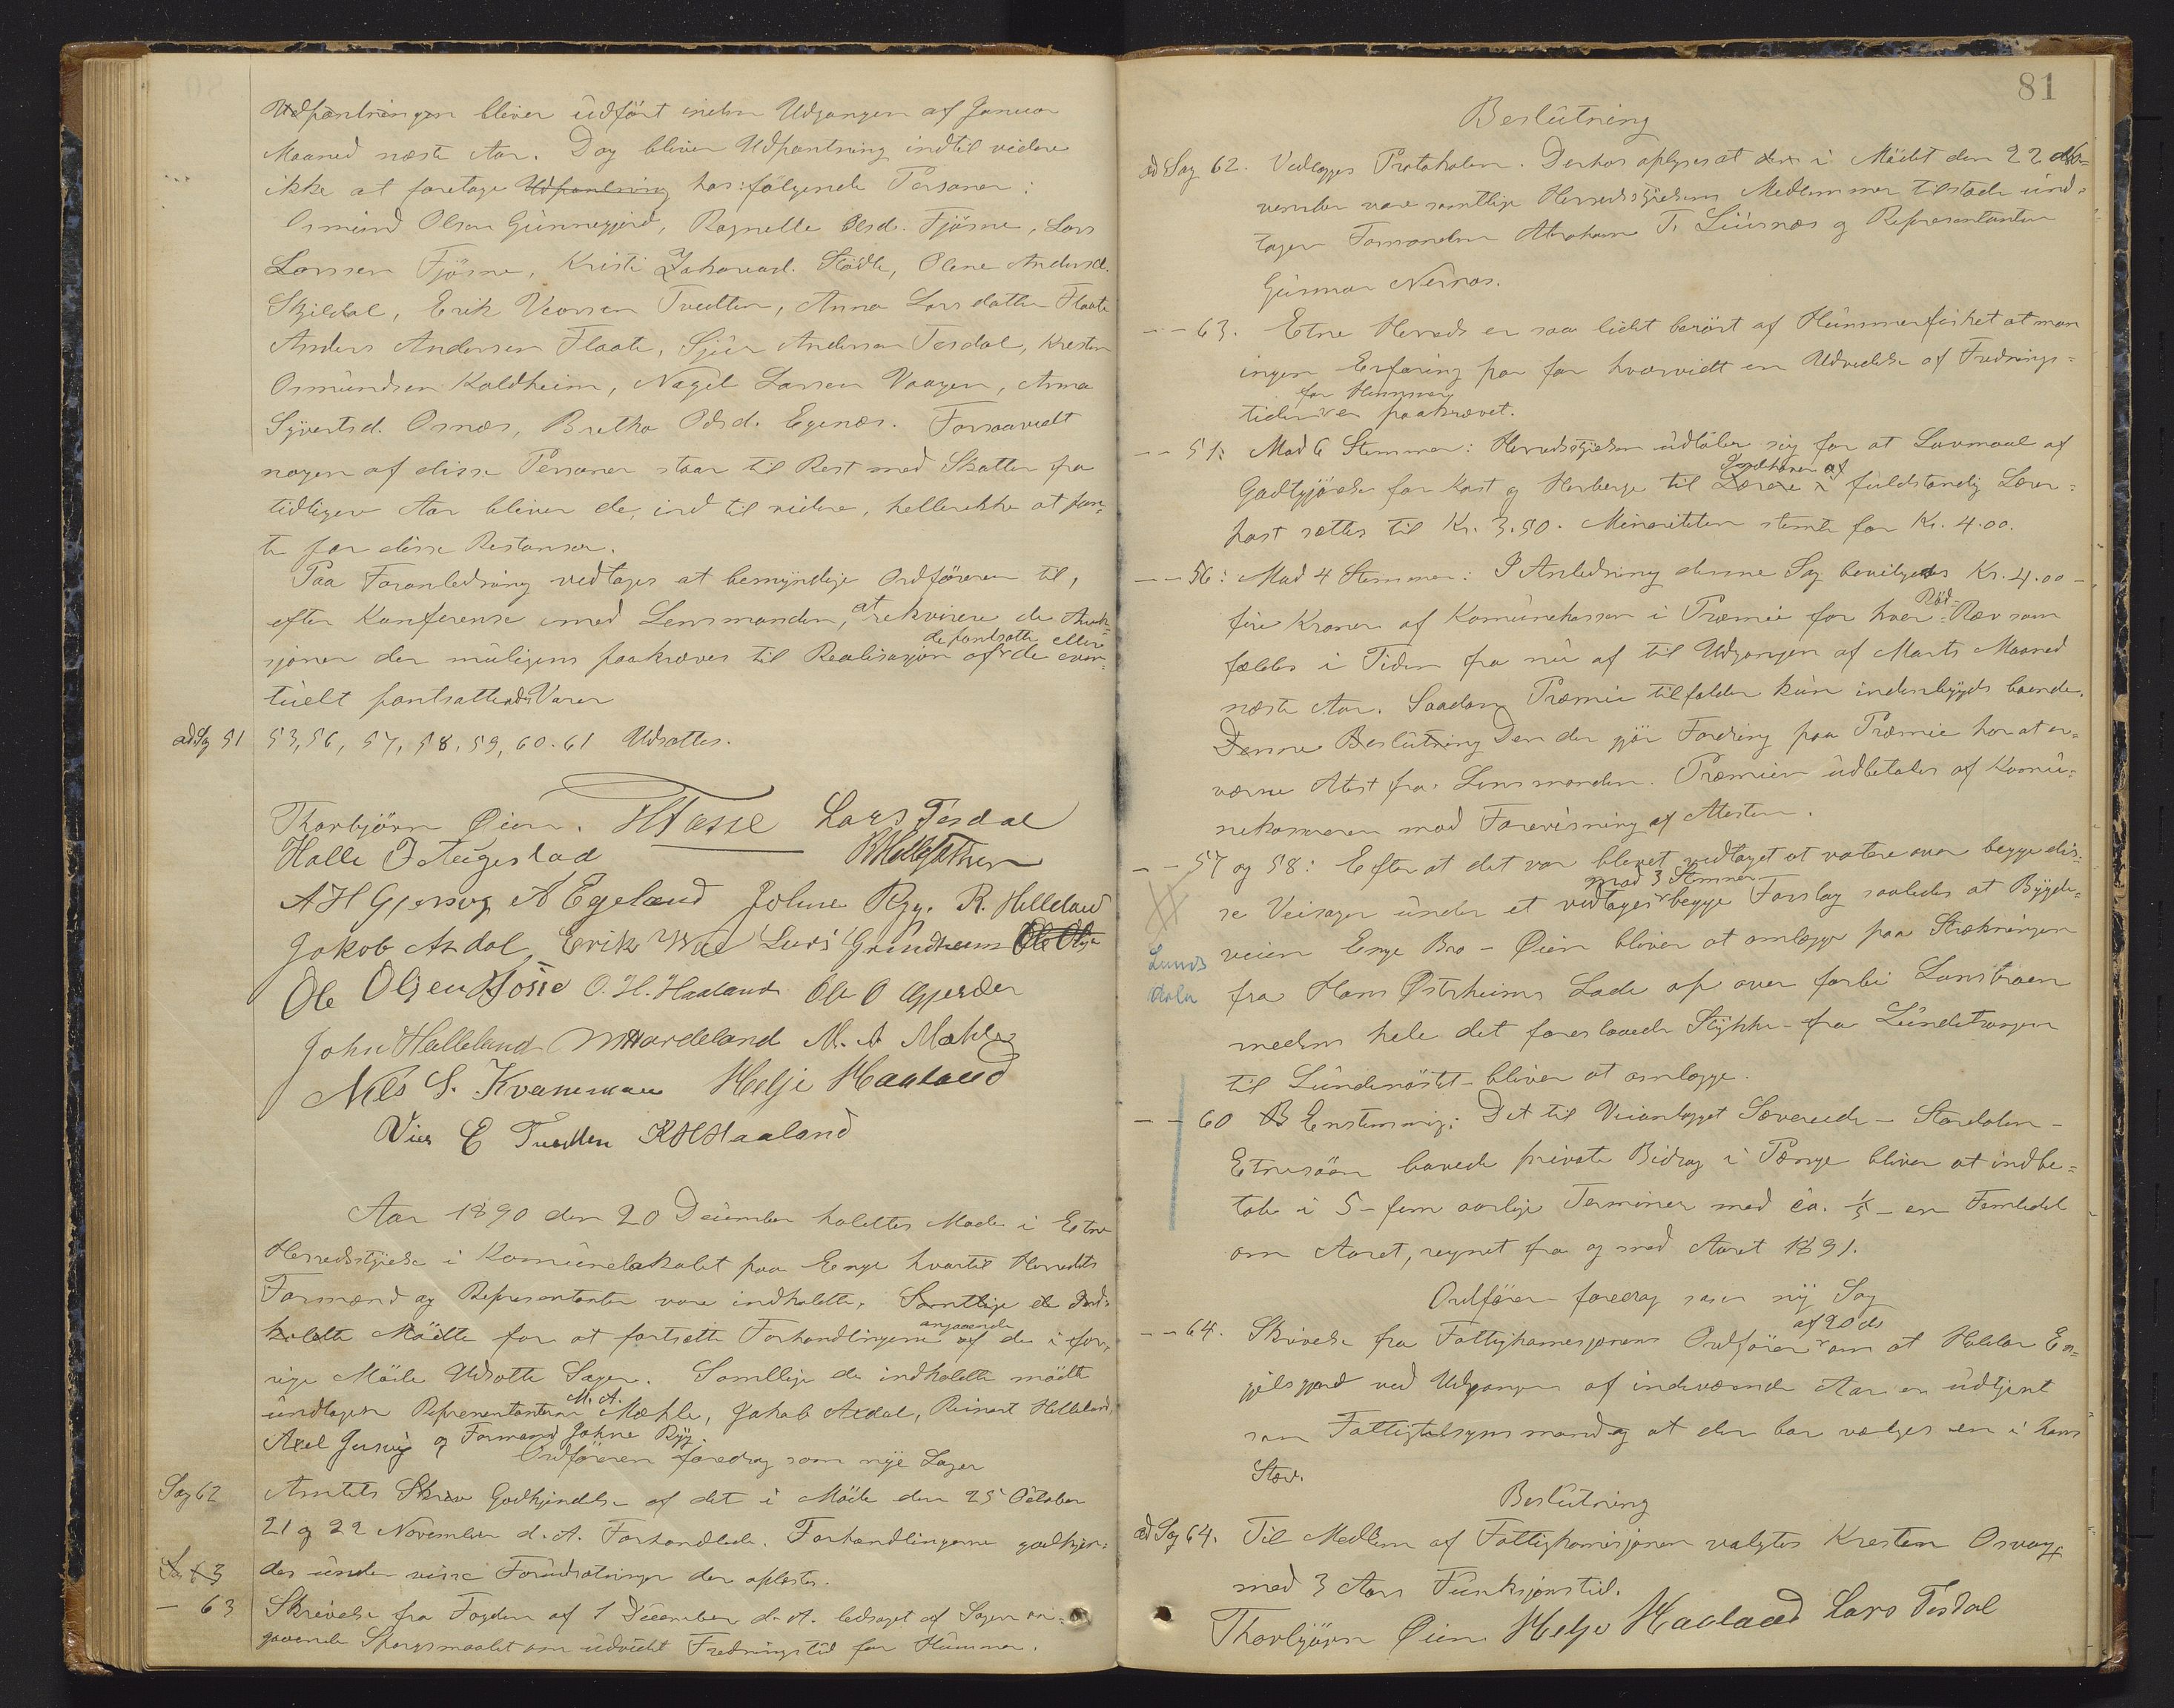 Udpantningen bliver udført inden Udgangen af Januar
Maaned næste Aar. Dog bliver Udpantning indtil videre
ikke at foretage Udpantning hos følgende Personer:
Osmund Olsen Gunnegjerd, Ragnelle Olsd. Fjøsne, Lars
Larssen Fjøsne, Kristi Zakariasd. Stødle, Olene Andersd.
Skjildal, Erik Tvedten, Anna Larsdatter Flaate
Anders Andersen Flaate, Sjur Andersen Tesdal, Kresten
Osmundsen Kaldheim, Nagel Larsen Vaagen, Anna
Syvertsd. Osnæs, Bretha Odsd. Egenæs. Forsaavidt
nogen af disse Personer staar til Rest med Skatter fra
tidligere Aar bliver de, ind til videre, heller ikke at pan-
te for disse Restanser.
Paa Foranledning vedtages at bemyndige Ordføreren til,
efter Konferense med Lensmanden, at rekvirere de Auk-
sjoner der muligens paakræves til Realisasjon af de pantsatte eller de even-
tuelt pantsattende Varer
ad Sag 51 53, 56, 57, 58, 59, 60. 61 Udsattes.
Thorbjörn Øien. Lars Tesdal
Halle
A H Gjersvig A Egeland Johne Ryg. R. Helleland
Jakob Aedal, Erik Lars Grindheim Ole
Ole Olsen O. H. Haaland Ole O Gjerder
John Helleland M. A. Mæhle
Nils S. Kvammen Helje Haaland
E Tvedten K H Haaland
Aar 1890 den 20 December holdtes Møde i Etne
Herredsstyrelse i Komunelokalet paa Enge hvortil Herredets
Formænd og Repræsentanter vare indkaldte. Samtlige de Ind-
kaldte Mødte for at fortsætte Forhandlingerne angaaende af de i for-
rige Møde Udsatte Sager. Samtlige de indkaldte mødte
undtagen Repræsentanterne M. A. Mæhle, Jakob Aedal, Reinert Helleland,
Axel Gjersvig og Formand Johne Ryg.
Ordføreren foredrog som nye Sager
Sag 62 Amtets Skriv Godkjendelse af det i Møde den 25 October
21 og 22 November d. A. Forhandlede. Forhandlingerne godkjen-
Sag 63 des under visse Forudsætninger der oplæstes.
— 63 Skrivelse fra Fogden af 1 December d. A. ledsaget af Sagen an-
gaaende Spørgsmaalet om udvidet Fredningstid for Hummer.
81
Beslutning
ad Sag 62. Vedlægges Protokolen. Derhos oplyses at den i Mødet den 22 No-
vember vare samtlige Herredsstyrelsens Medlemmer tilstede und-
tagen Formanden Abraham T. Liusnæs og Repræsentanten
Gunnar Nernæs.
— — 63. Etne Herred er saa lidet berørt af Hummerfisket at man
ingen Erfaring har for hvorvidt en Udvidelse af Frednings-
tiden for Hummer er paakrævet.
— — 51: Mod 6 Stemmer: Herredsstyrelsen udtaler sig for at Lavmaal af
Godtgjørelse for Kost og Herberge til Lærere i Indehaver af fuldstændig Lærer-
post sættes til Kr. 3.50. Minoriteten stemte for Kr. 4.00.
— — 56: Mod 4 Stemmer: I Anledning denne Sag bevilgedes Kr. 4.00 —
fire Kroner af Komunekassen i Præmie for hver Rød- Ræv som
fældes i Tiden fra nu af til Udgangen af Marts Maaned
næste Aar. Saadan Præmie tilfalder kun indenbygds boende.
Denne Beslutning Den der gjør Fordring paa Præmie har at er-
værve Atest fra Lensmanden. Præmien udbetales af Komu-
nekasseren mod Forevisning af Attesten.
— — 57 og 58: Efter at det var blevet vedtaget at votere over begge dis-
se Veisager under et vedtages mod 3 Stemmer begge Forslag saaledes at Bygde-
veien Enge Bro — Øien bliver at omlægge paa Strækningen
Lunds
dale
fra Hans Østrheims Lade op over forbi Lansbroen
medens hele det foreslaaede Stykke fra Lundetrangen
til Lundenøstet bliver at omlægge.
— — 60 B Enstemmig: Det til Veianlægget Sævereide — Stordalen —
Etnesøen lovede private Bidrag i Penge bliver at indbe-
tale i 5 — fem aarlige Terminer med ca. 1/5 — en Femtedel
om Aaret, regnet fra og med Aaret 1891.
Ordføreren foredrog som ny Sag
— — 64. Skrivelse fra Fattigkomisjonens Ordfører af 20 ds om at Haldor En-
gjelsgjerd ved Udgangen af indeværende Aar er udtjent
som Fattigtilsynsmand og at der bør vælges en i hans
Sted.
Beslutning
ad Sag 64. Til Medlem af Fattigkomisjonen valgtes Kresten Osvaag
med 3 Aars Funksjonstid.
Thorbjörn Øien Helje Haaland Lars Tesdal